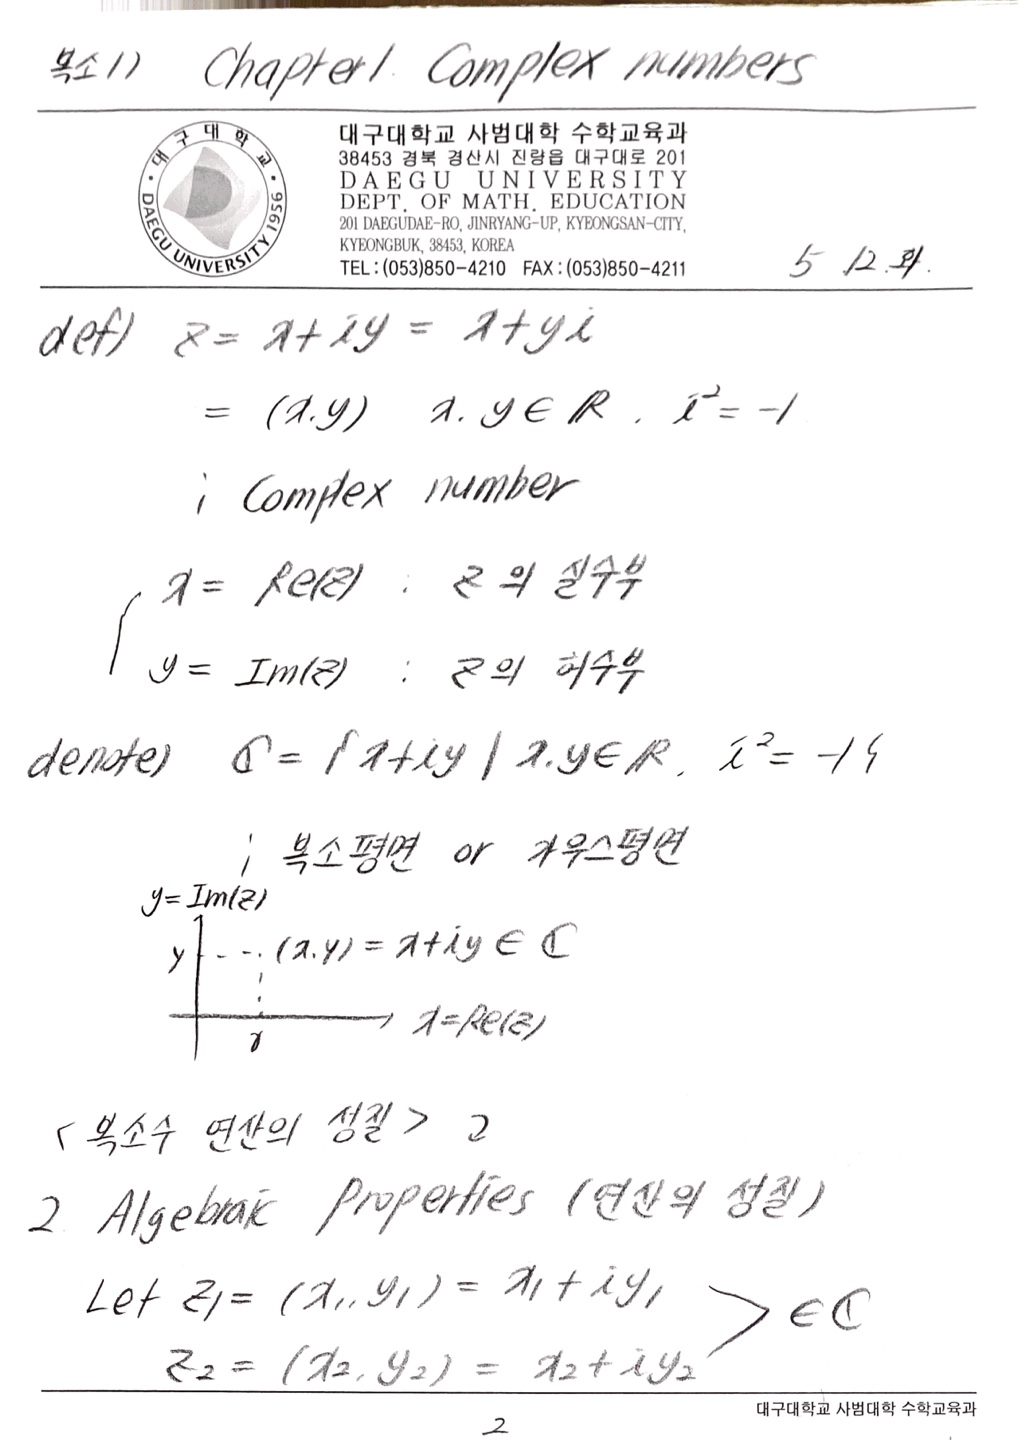 복소1) Chapter1. Complex numbers
대구대학교
DAEGU UNIVERSITY 1956
대구대학교 사범대학 수학교육과
38453 경북 경산시 진량읍 대구대로 201
DAEGU UNIVERSITY
DEPT. OF MATH. EDUCATION
201 DAEGUDAE-RO, JINRYANG-UP, KYEONGSAN-CITY,
KYEONGBUK, 38453, KOREA
TEL : (053)850-4210 FAX : (053)850-4211
5 12.화.
def) z = x+iy = x+yi
= (x.y) x. y ∈ ℝ . i² = -1
; Complex number
x = Re(z) : z의 실수부
y = Im(z) : z의 허수부
denote) ℂ = { x+iy | x.y∈ℝ. i² = -1 }
; 복소평면 or 가우스평면
y = Im(z)
y (x.y) = x+iy ∈ ℂ
x = Re(z)
x
< 복소수 연산의 성질 > 2
2. Algebraic Properties (연산의 성질)
Let z₁ = (x₁, y₁) = x₁ + iy₁
z₂ = (x₂, y₂) = x₂ + iy₂ > ∈ ℂ
대구대학교 사범대학 수학교육과
2